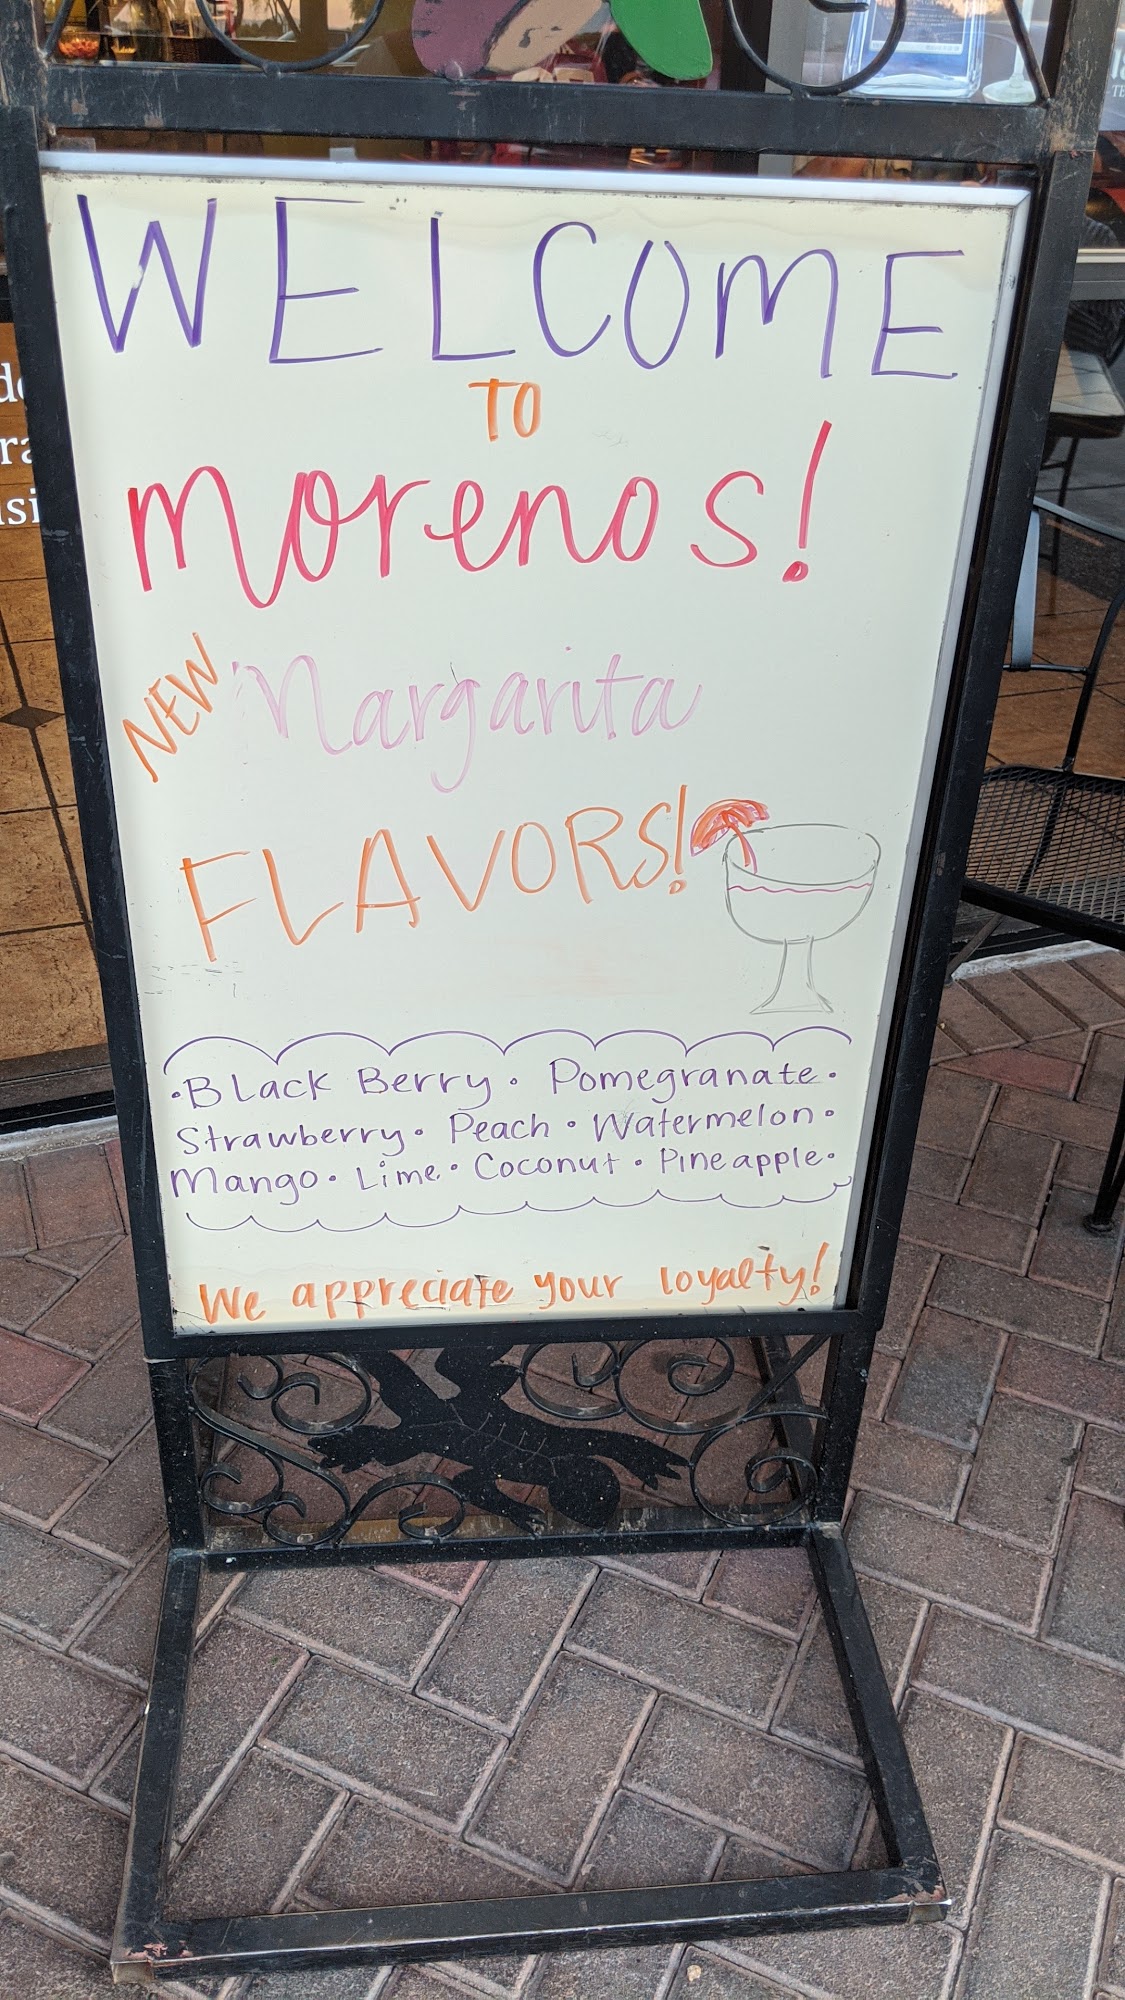 WELCOME
TO
morenos!
NEW Margarita
FLAVORS!
• BLack Berry • Pomegranate •
Strawberry • Peach • Watermelon •
Mango • Lime • Coconut • Pineapple •
We appreciate your loyalty!